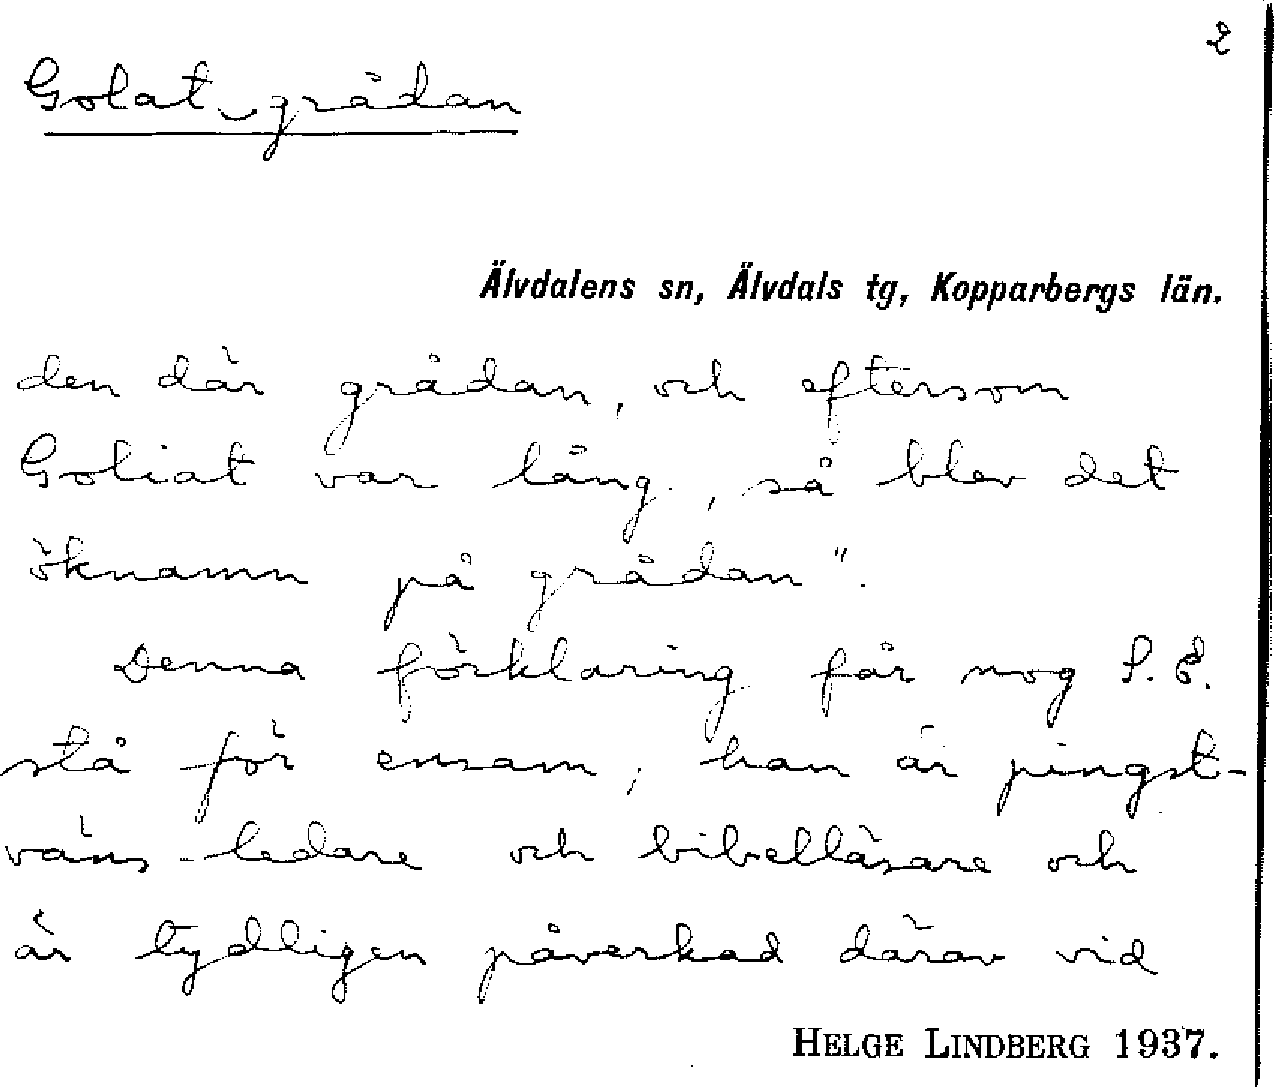 2
Golat-grådan
Älvdalens sn, Älvdals tg, Kopparbergs län.
den där grådan, och eftersom
Goliat var lång, så blev det
öknamn på grådan".
Denna förklaring får nog S. E.
stå för ensam; han är pingst-
väns-ledare och bibelläsare och
är tydligen påverkad därav vid
HELGE LINDBERG 1937.